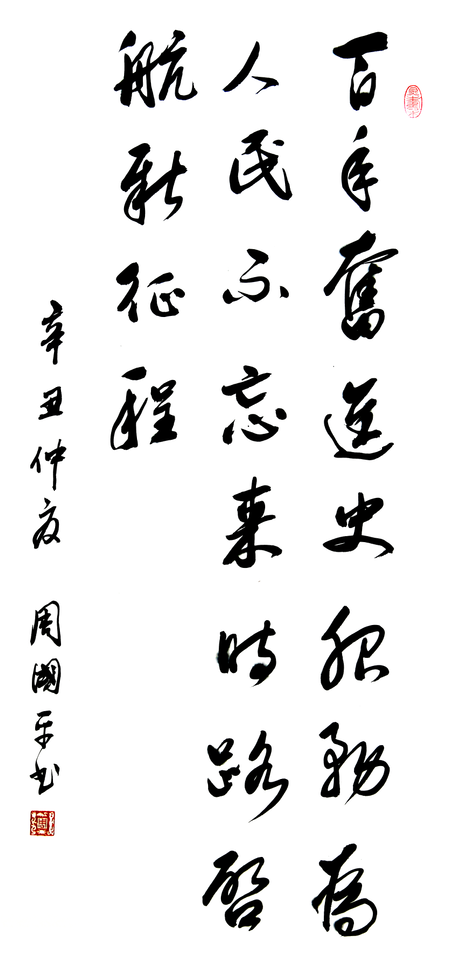 百年奮進史服務為
人民不忘來時路啓
航新征程
辛丑仲夏 周國平书